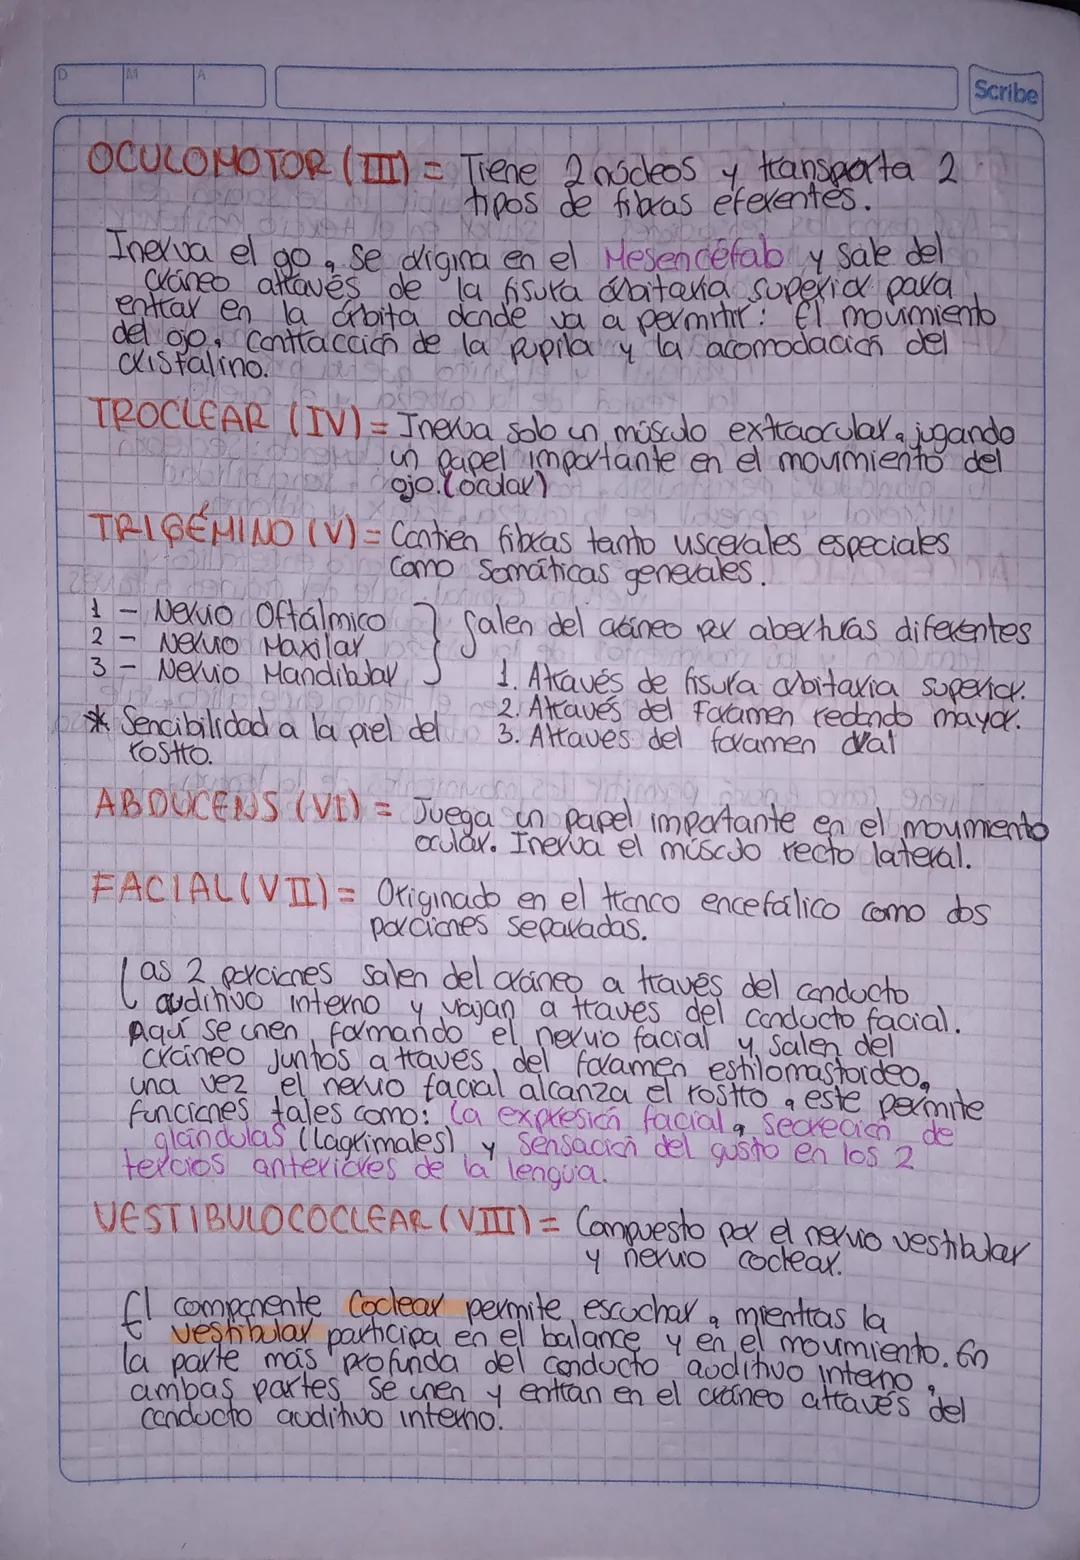 D M A
Scribe
OCULOMOTOR (III) = Tiene 2 núcleos y transporta 2
tipos de fibras eferentes.
Inerva el ojo, se origina en el Mesencéfalo y sale del
cráneo através de la fisura orbitaria superior para
entrar en la órbita donde va a permitir: El movimiento
del ojo, contracción de la pupila y la acomodación del
cristalino.
TROCLEAR (IV) = Inerva solo un músculo extraocular, jugando
un papel importante en el movimiento del
ojo. (ocular)
TRIGÉMINO (V) = Contien fibras tanto viscerales especiales
como somáticas generales.
1 - Nervio Oftálmico } Salen del cráneo por aberturas diferentes
2 - Nervio Maxilar
3 - Nervio Mandibular
1. Através de fisura orbitaria superior.
2. Através del Foramen redondo mayor.
3. Através del foramen oval
* Sencibilidad a la piel del
rostro.
ABDUCENS (VI) = Juega un papel importante en el movimiento
ocular. Inerva el músculo recto lateral.
FACIAL (VII) = Originado en el tronco encefálico como dos
porciones separadas.
Las 2 porciones salen del cráneo a través del conducto
auditivo interno y viajan a traves del conducto facial.
Aquí se unen, formando el nervio facial y salen del
cráneo juntos a traves del foramen estilomastoideo,
una vez el nervio facial alcanza el rostro, este permite
funciones tales como: la expresión facial, secreción de
glándulas (lagrimales) y sensación del gusto en los 2
tercios anteriores de la lengua.
VESTIBULOCOCLEAR (VIII) = Compuesto por el nervio vestibular
y nervio coclear.
El componente Coclear permite escuchar, mientras la
vestibular participa en el balance y en el movimiento. En
la parte más profunda del conducto auditivo interno,
ambas partes se unen y entran en el cráneo através del
conducto auditivo interno.